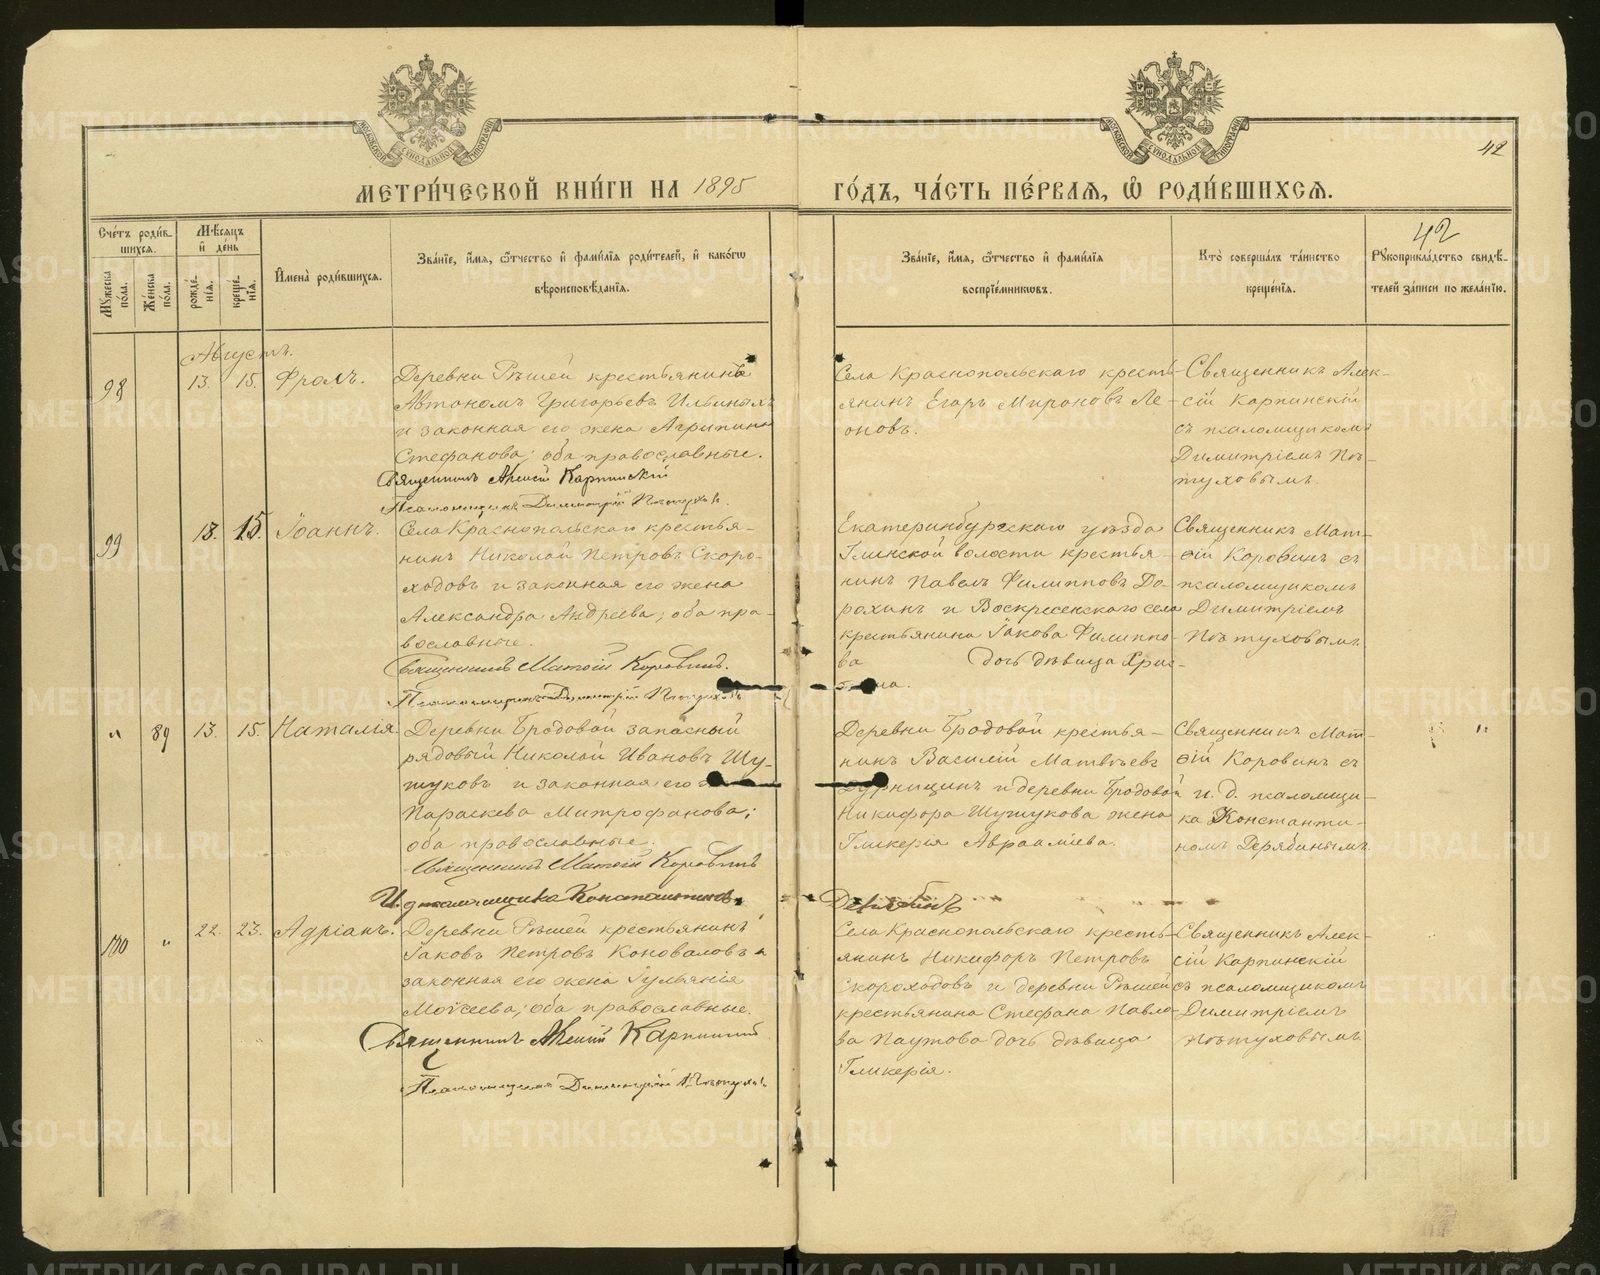 МОСКОВСКОЙ СѴНОДАЛЬНОЙ ТИПОГРАФІИ
МОСКОВСКОЙ СѴНОДАЛЬНОЙ ТИПОГРАФІИ
42
МЕТРИ́ЧЕСКОЙ КНИ́ГИ НА 1895 ГО́ДЪ, ЧА́СТЬ ПЕ́РВАЯ, Ѡ РОДИ́ВШИХСЯ.
42
Сче́тъ роди́в-
шихся.
Мꙋ́жеска по́ла.
Же́нска по́ла.
Мѣ́сяцъ
и҆ де́нь
рожде́-
нія.
креще́-
нія.
И҆мена̀ роди́вшихся.
Зва́ніе, и҆́мя, ѻ҆́тчество и҆ фами́лія роди́телей, и҆ како́гѡ
вѣроисповѣ́данія.
Зва́ніе, и҆́мя, ѻ҆́тчество и҆ фами́лія
воспріе́мниковъ.
Кто̀ соверша́лъ та́инство
креще́нія.
Рꙋкоприкла́дство свидѣ́-
телей за́писи по жела́нію.
Августъ.
98
13. 15. Фролъ.
Деревни Рѣшей крестьянинъ
Автономъ Григорьевъ Ильиныхъ
и законная его жена Агрипина
Стефанова; оба православные.
Священникъ Алексій Карпинскій
Псаломщикъ Димитрій Пѣтуховъ.
Села Краснопольскаго кресть-
янинъ Егоръ Мироновъ Ле-
оновъ.
Священникъ Алек-
сій Карпинскій
съ псаломщикомъ
Димитріемъ Пѣ-
туховымъ.
99
13. 15. Іоаннъ.
Села Краснопольскаго крестья-
нинъ Николай Петровъ Скоро-
ходовъ и законная его жена
Александра Андреева; оба пра-
вославные.
Священникъ Матѳій Коровинъ.
Псаломщикъ Димитрій Пѣтуховъ
Екатеринбургскаго уѣзда
Глинской волости крестья-
нинъ Павелъ Филипповъ До-
рохинъ и Воскресенскаго села
крестьянина Іакова Филиппо-
ва дочь дѣвица Хрис-
тина.
Священникъ Мат-
ѳій Коровинъ съ
псаломщикомъ
Димитріемъ
Пѣтуховымъ.
" 89 13. 15. Наталія.
Деревни Бродовой запасный
рядовый Николай Ивановъ Шу-
туковъ и законная его
Параскева Митрофанова;
оба православные.
Священникъ Матѳій Коровинъ
И. д. псаломщика Константинъ Дерябинъ
Деревни Бродовой крестья-
нинъ Василій Матвѣевъ
и деревни Бродовой
Никифора Шутукова жена
Гликерія Авраамiева.
Священникъ Мат-
ѳій Коровинъ съ
и. д. псаломщи-
ка Константи-
номъ Дерябинымъ.
"
100 " 22. 23. Адріанъ.
Деревни Рѣшей крестьянинъ
Іаковъ Петровъ Коноваловъ и
законная его жена Іуліанія
Моѵсеева; оба православные.
Священникъ Алексій Карпинскій
Псаломщикъ Димитрій Пѣтуховъ
Села Краснопольскаго кресть-
янинъ Никифоръ Петровъ
Скороходовъ и деревни Рѣшей
крестьянина Стефана Павло-
ва Паутова дочь дѣвица
Гликерія.
Священникъ Алек-
сій Карпинскій
съ псаломщикомъ
Димитріемъ
Пѣтуховымъ.
METRIKI.GASO-URAL.RU